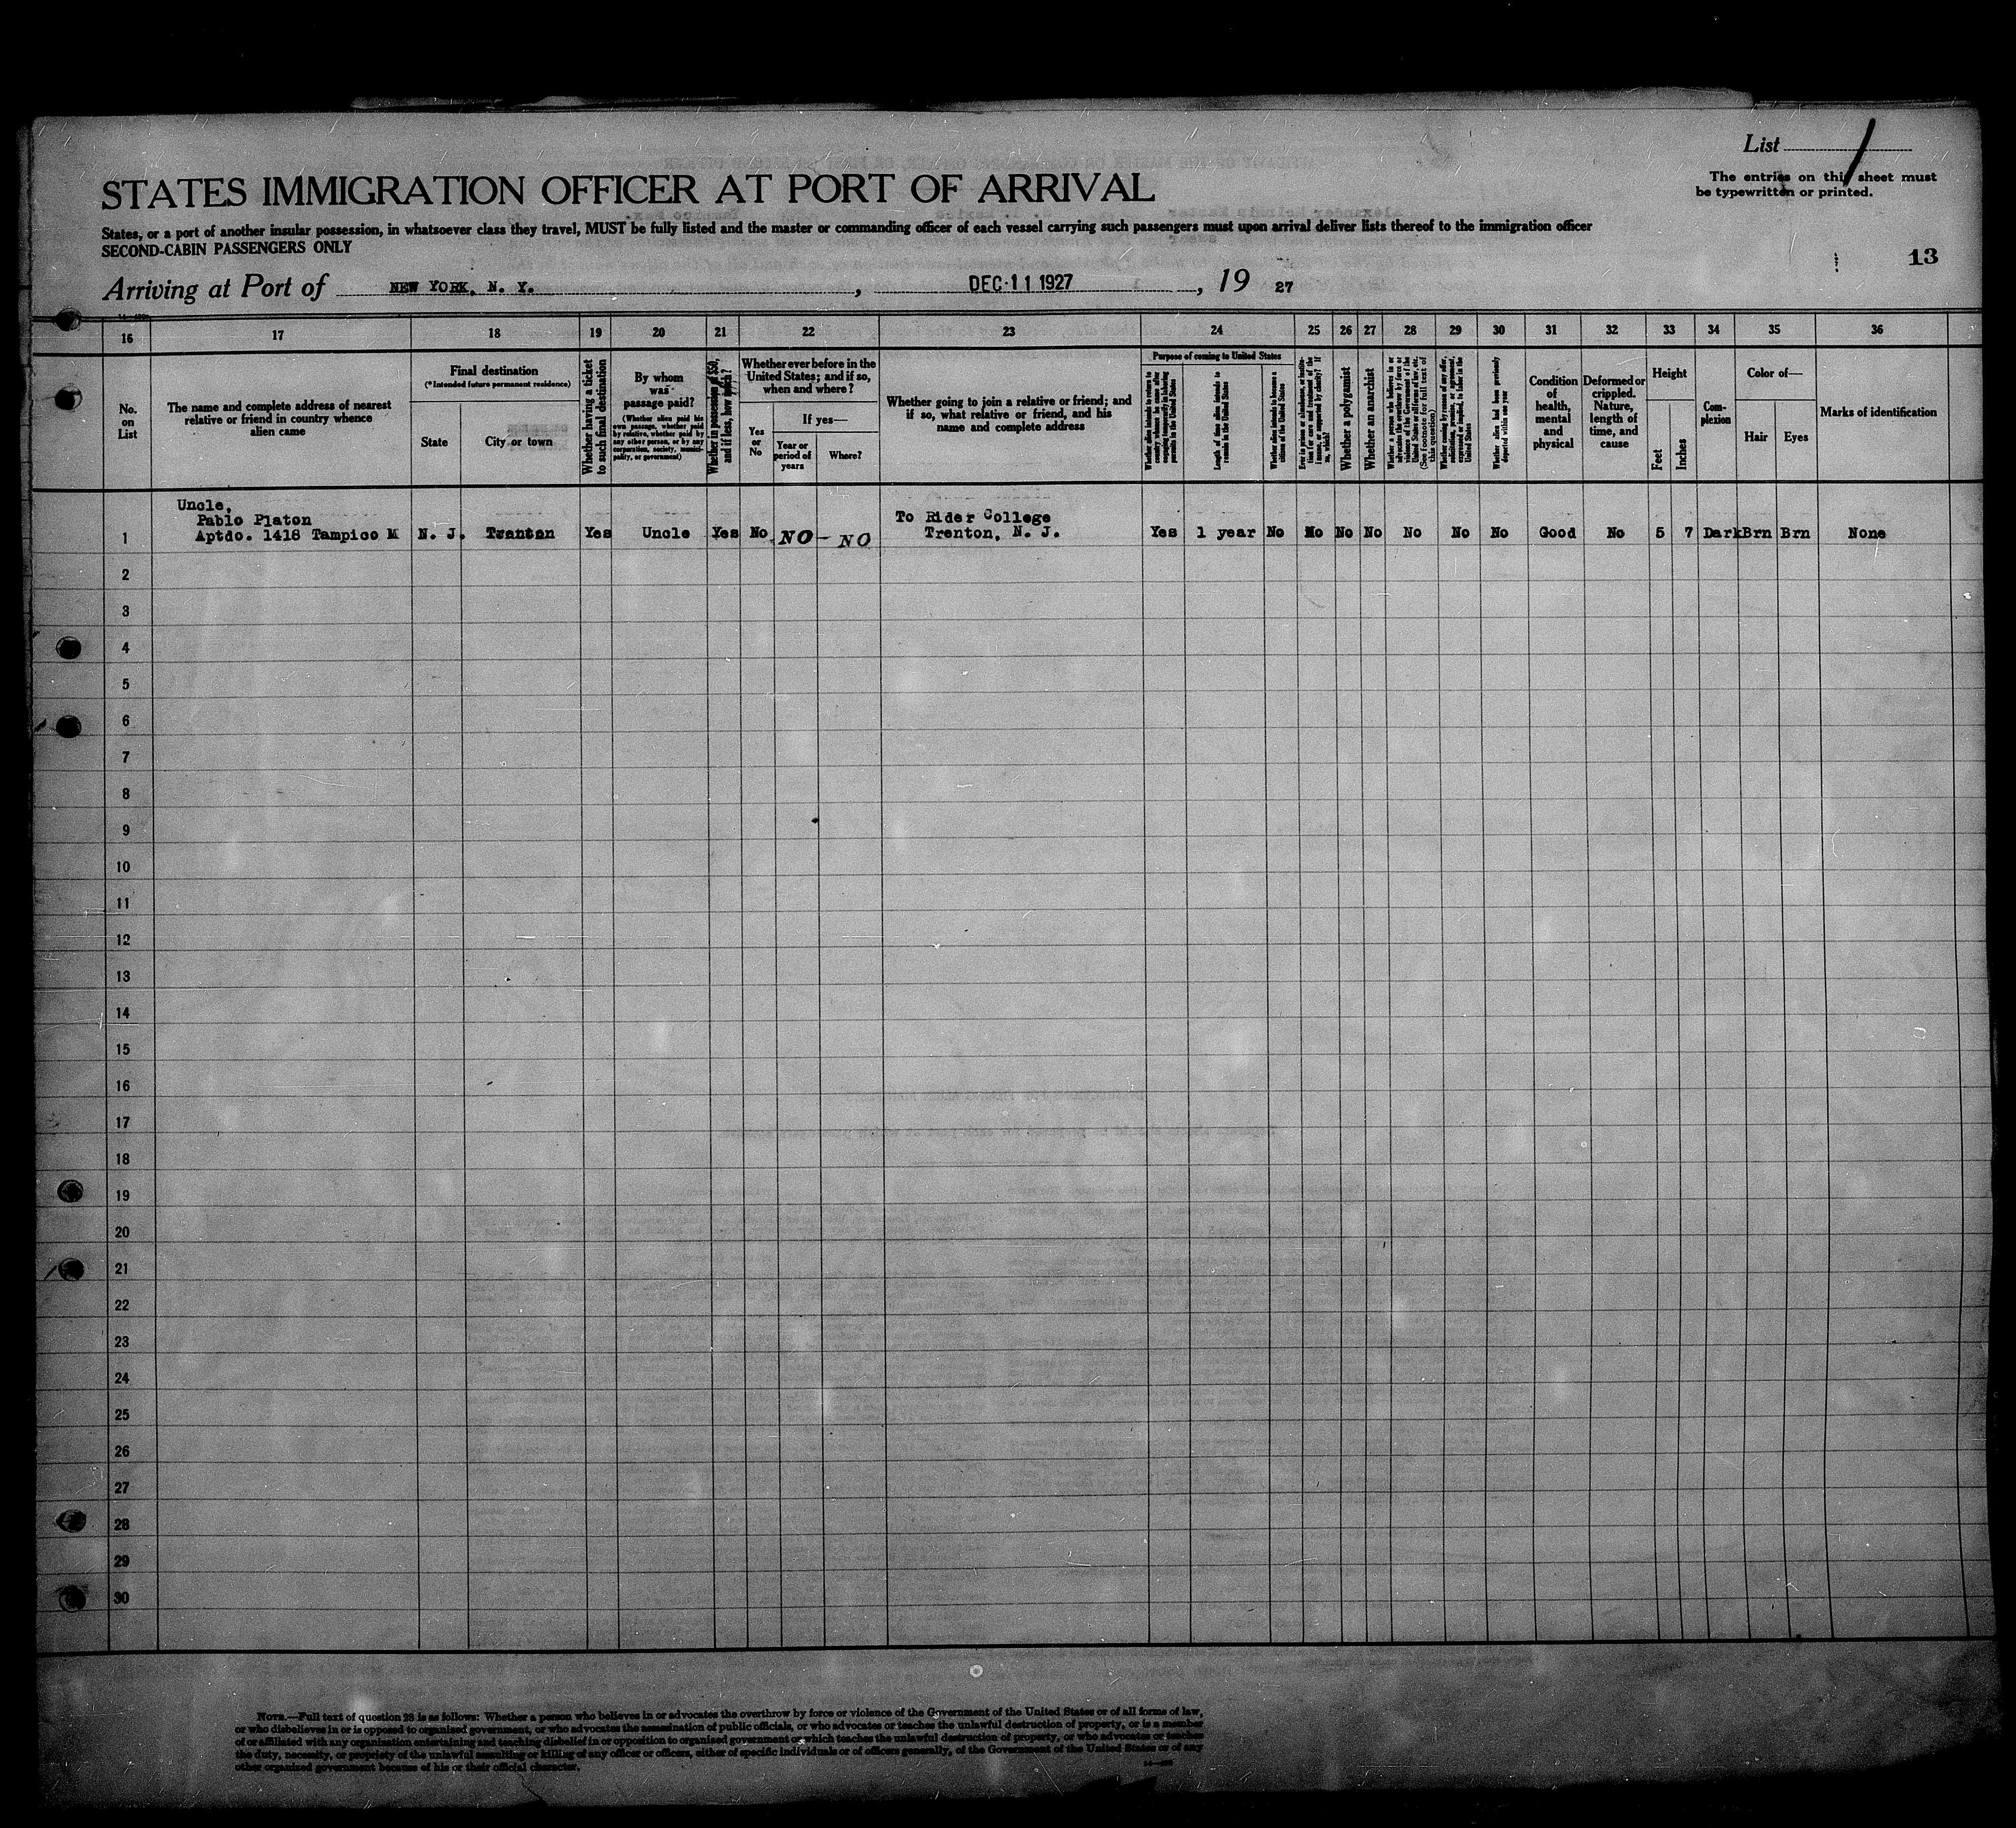 List 1
The entries on this sheet must
be typewritten or printed.
STATES IMMIGRATION OFFICER AT PORT OF ARRIVAL
States, or a port of another insular possession, in whatsoever class they travel, MUST be fully listed and the master or commanding officer of each vessel carrying such passengers must upon arrival deliver lists thereof to the immigration officer
SECOND-CABIN PASSENGERS ONLY
13
Arriving at Port of NEW YORK, N. Y., DEC 11 1927, 19 27
16 17 18 19 20 21 22 23 24 25 26 27 28 29 30 31 32 33 34 35 36
No. on List
The name and complete address of nearest relative or friend in country whence alien came
Final destination
(*Intended future permanent residence)
State
City or town
Whether having a ticket to such final destination
By whom was passage paid?
(Whether alien paid his own passage, whether paid by relative, whether paid by any other person, or by any corporation, society, municipality, or government)
Whether in possession of $50, and if less, how much?
Whether ever before in the United States; and if so, when and where?
Yes or No
If yes—
Year or period of years
Where?
Whether going to join a relative or friend; and if so, what relative or friend, and his name and complete address
Purpose of coming to United States
Whether alien intends to return to country whence he came after engaging temporarily in laboring pursuits in the United States
Length of time alien intends to remain in the United States
Whether alien intends to become a citizen of the United States
Ever in prison or almshouse, or institution for care and treatment of the insane, or supported by charity? If so, which?
Whether a polygamist
Whether an anarchist
Whether a person who believes in or advocates the overthrow by force or violence of the Government of the United States or all forms of law, etc. (See footnote for full text of this question)
Whether coming by reason of any offer, solicitation, promise, or agreement, expressed or implied, to labor in the United States
Whether alien had been previously deported within one year
Condition of health, mental and physical
Deformed or crippled. Nature, length of time, and cause
Height
Feet
Inches
Complexion
Color of—
Hair
Eyes
Marks of identification
Uncle,
Pablo Platon
To Rider College
1 Aptdo. 1418 Tampico M N. J. Trenton Yes Uncle Yes No NO — NO Trenton, N. J. Yes 1 year No No No No No No No Good No 5 7 Dark Brn Brn None
2
3
4
5
6
7
8
9
10
11
12
13
14
15
16
17
18
19
20
21
22
23
24
25
26
27
28
29
30
NOTE.—Full text of question 28 is as follows: Whether a person who believes in or advocates the overthrow by force or violence of the Government of the United States or of all forms of law,
or who disbelieves in or is opposed to organized government, or who advocates the assassination of public officials, or who advocates or teaches the unlawful destruction of property, or is a member
of or affiliated with any organization entertaining and teaching disbelief in or opposition to organized government or which teaches the unlawful destruction of property, or who advocates or teaches
the duty, necessity, or propriety of the unlawful assaulting or killing of any officer or officers, either of specific individuals or of officers generally, of the Government of the United States or of any
other organized government because of his or their official character.